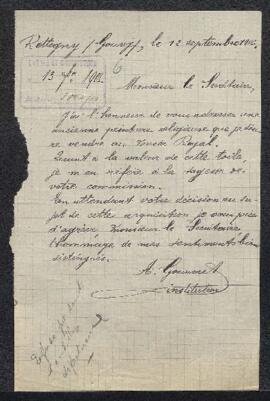 Rettigny (Gouvy), le 12 septembre 1912,
13 7bre 1912
6
Monsieur le Secrétaire,
J'ai l'honneur de vous adresser une
ancienne peinture religieuse que je désire
vendre au Musée Royal.
Quant à la valeur de cette toile,
je m'en réfère à la sagesse de
votre commission.
En attendant votre décision au su-
jet de cette acquisition je vous prie
d'agréer Monsieur le Secrétaire,
l'hommage de mes sentiments bien
distingués.
A.
instituteur